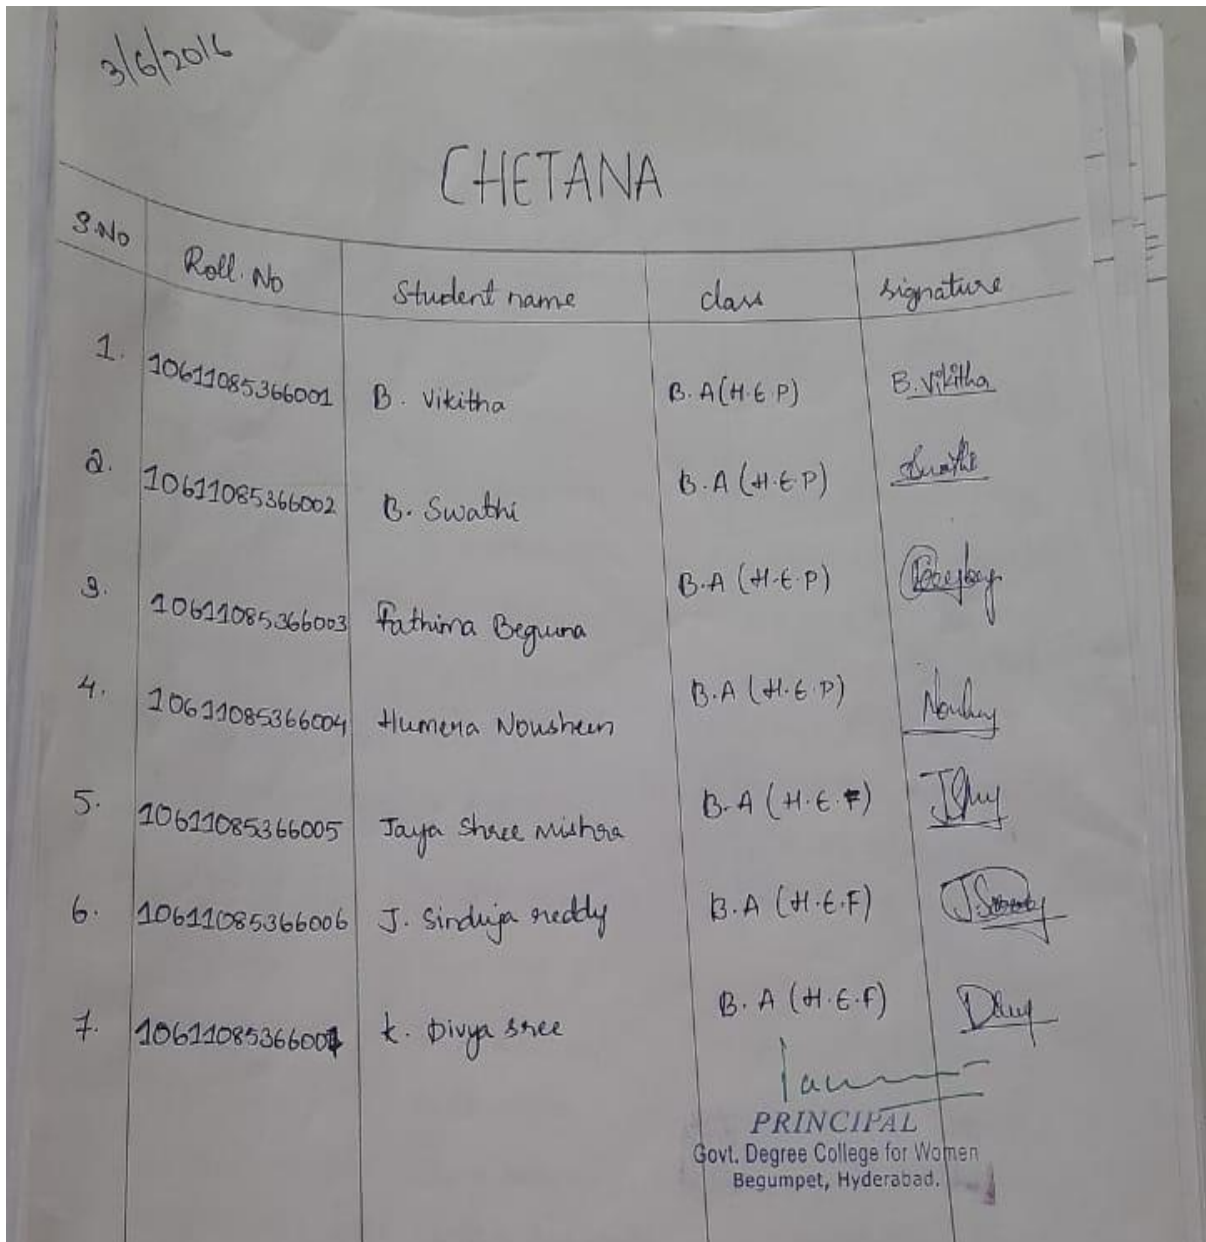 3/6/2016
CHETANA
S.No Roll. No Student name class signature
1. 10611085366001 B. Vikitha B.A(H.E P) B.Vikitha
2. 10611085366002 B. Swathi B.A (H.E.P) Swathi
3. 10611085366003 Fathima Beguma B.A (H.E.P)
4. 10611085366004 Humera Nousheen B.A (H.E.P)
5. 10611085366005 Jaya Shree Mishra B.A (H.E.F)
6. 10611085366006 J. Sinduja reddy B.A (H.E.F)
7. 10611085366007 K. Divya sree B.A (H.E.F)
PRINCIPAL
Govt. Degree College for Women
Begumpet, Hyderabad.